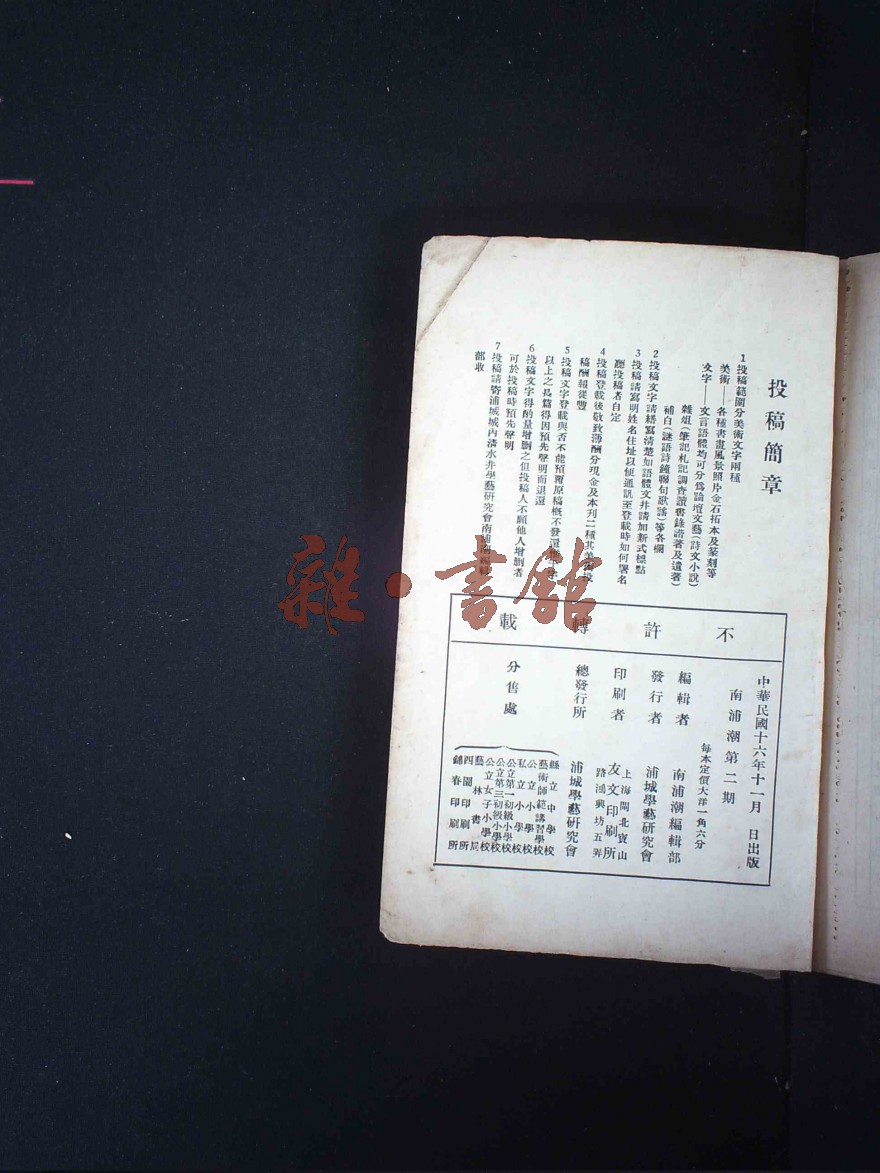 投稿簡章
1投稿範圍分美術文字兩種
美術——各種書畫風景照片金石拓本及篆刻等
文字——文言語體均可分爲論壇文藝(詩文小說)
雜俎(筆記札記調查讀書錄譜著及遺著)
補白(謎語詩鐘聯句歌謠)等各欄
2投稿文字請繕寫清楚如語體文幷請加新式標點
3投稿請寫明姓名住址以便通訊至登載時如何署名
聽投稿者自定
4投稿登載後敬致薄酬分現金及本刊二種其美術投
稿酬報從豐
5投稿文字登載與否不能預覆原稿概不發還
以上之長篇得因預先聲明而退還
6投稿文字得酌量增删之但投稿人不願他人增删者
可於投稿時預先聲明
7投稿請寄浦城城內清水井學藝研究會南浦潮編輯
部收
不許轉載
中華民國十六年十一月 日出版
南浦潮第二期
每本定價大洋一角六分
編輯者 南浦潮編輯部
發行者 浦城學藝研究會
印刷者 友文印刷所
上海閘北寶山
路鴻興坊五弄
總發行所 浦城學藝研究會
分售處
縣立中學校
藝術師範講習學校
公立小學校
私立小學校
公立第一初級小學校
公立第三初級小學校
公立女子小學校
藝林書局
四園印刷所
鋪春印刷所
雜·書館